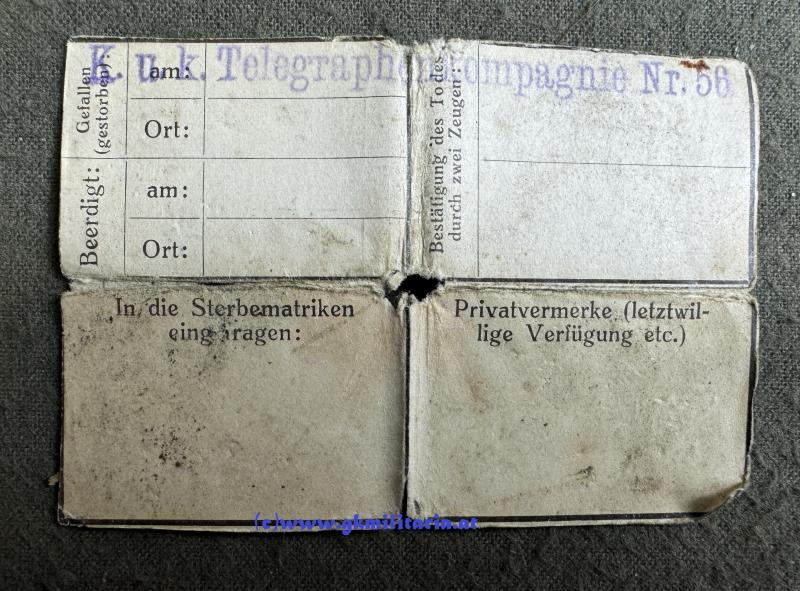 K. u. k. Telegraphenkompagnie Nr. 56
Gefallen
(gestorben):
am:
Ort:
Beerdigt:
am:
Ort:
Bestätigung des Todes
durch zwei Zeugen:
In die Sterbematriken
eingetragen:
Privatvermerke (letztwil-
lige Verfügung etc.)
(c)www.gkmilitaria.at